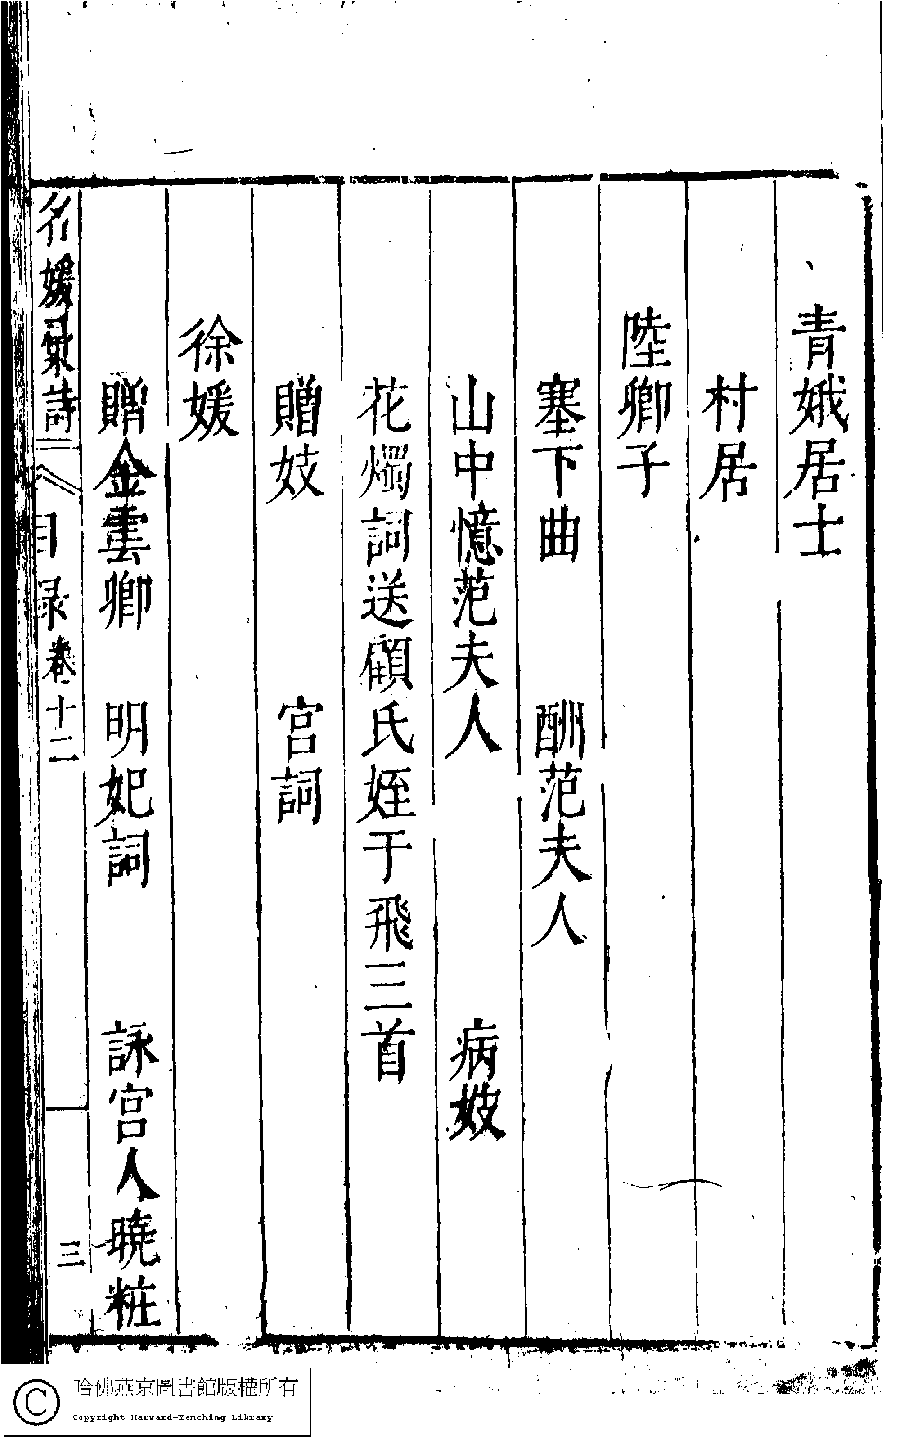 青娥居士
村居
陸卿子
塞下曲　酬范夫人
山中憶范夫人　病妓
花燭詞送顧氏姪于飛三首
贈妓　宮詞
徐媛
贈金雲卿　明妃詞　詠宮人曉粧
名媛彙詩　目录卷十二　三
哈佛燕京圖書館版權所有
Copyright Harvard-Yenching Library